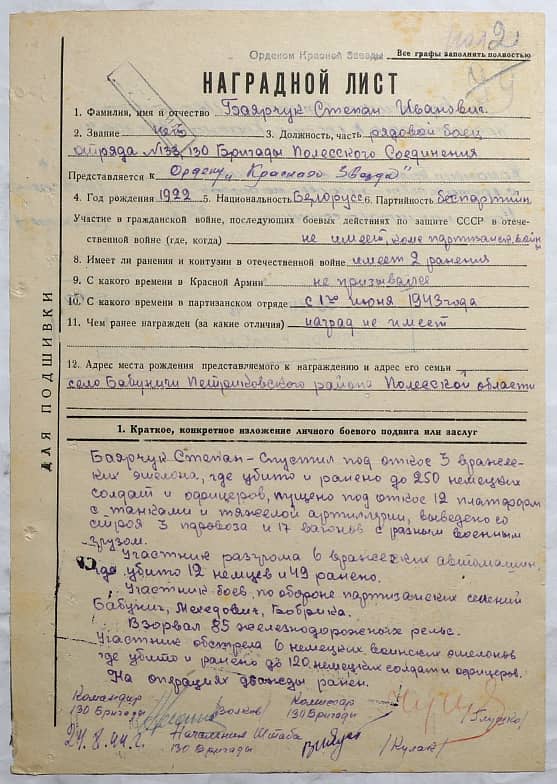 2
Орденом Красной Звезды
Все графы заполнять полностью
НАГРАДНОЙ ЛИСТ
1. Фамилия, имя и отчество Баярчук Степан Иванович
2. Звание нет 3. Должность, часть рядовой боец
отряда №133, 130 Бригады Полесского Соединения
Представляется к Ордену „Красная Звезда"
4. Год рождения 1922 5. Национальность Белорусс 6. Партийность беспартийн
Участие в гражданской войне, последующих боевых действиях по защите СССР в отече-
ственной войне (где, когда) не имеет, кроме партизанск. войны
8. Имеет ли ранения и контузии в отечественной войне имеет 2 ранения
9. С какого времени в Красной Армии не призывался
10. С какого времени в партизанском отряде с 1го июня 1943 года
11. Чем ранее награжден (за какие отличия) наград не имеет
12. Адрес места рождения представляемого к награждению и адрес его семьи
село Бабуничи Петриковского района Полесской области
ДЛЯ ПОДШИВКИ
1. Краткое, конкретное изложение личного боевого подвига или заслуг
Баярчук Степан – Спустил под откос 3 вражес-
ких эшелона, где убито и ранено до 250 немецких
солдат и офицеров, пущено под откос 12 платформ
с танками и тяжелой артиллерии, выведено со
строя 3 паровоза и 17 вагонов с разным военным
грузом.
Участник разгрома 6 вражеских автомашин,
где убито 12 немцев и 49 ранено.
Участник боев, по обороне партизанских селений
Бабунич, Мехедович, Бобрика.
Взорвал 85 железнодорожных рельс.
Участник обстрела 6 немецких воинских эшелонов
где убито и ранено до 120 немецких солдат и офицеров.
На операциях дважды ранен.
Командир
130 Бригады Волков
Комиссар
130 Бригады
24.8.44 г.
Начальник Штаба
130 Бригады /Кулак/